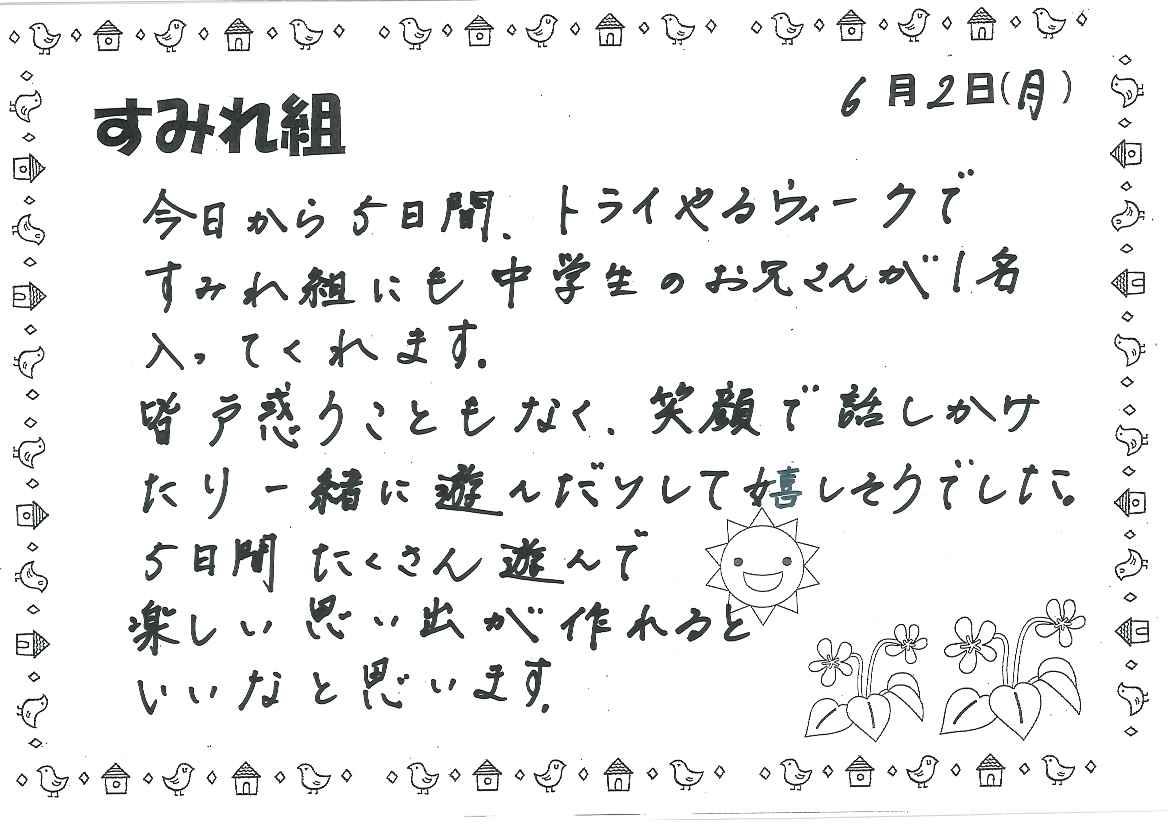 6月2日(月)
すみれ組
今日から5日間、トライやるウィークで
すみれ組にも中学生のお兄さんが1名
入ってくれます。
皆戸惑うこともなく、笑顔で話しかけ
たり一緒に遊んだりして嬉しそうでした。
5日間たくさん遊んで
楽しい思い出が作れると
いいなと思います。